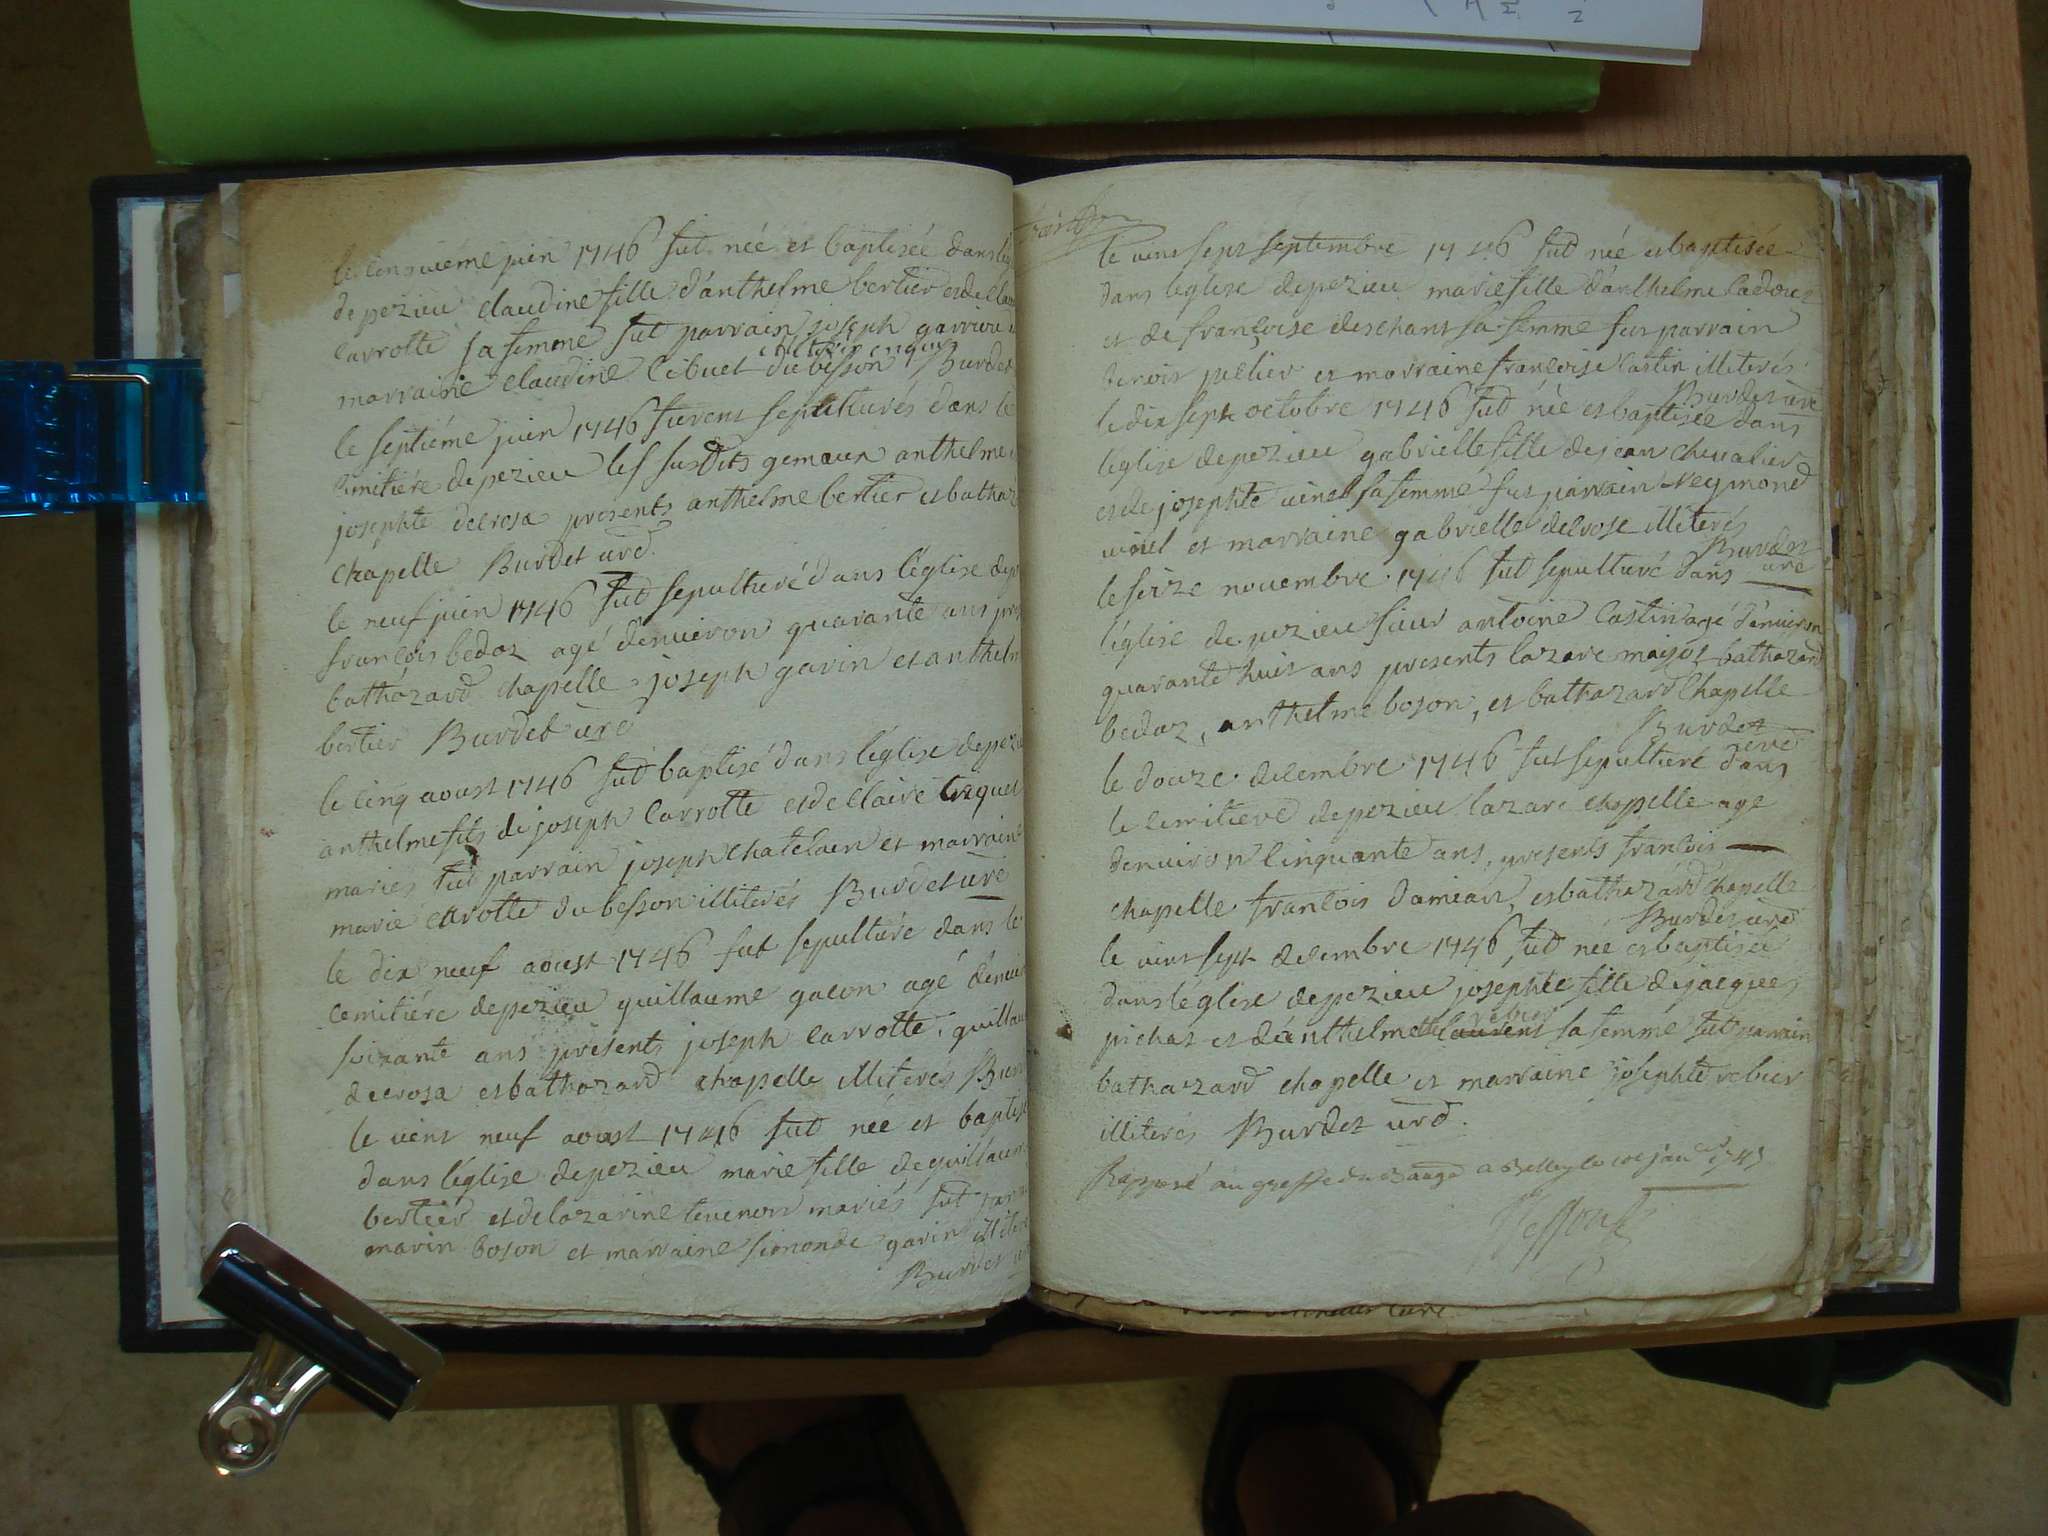 le cinquiéme juin 1746 fut née et baptisée dans
de pezieu claudine fille d'anthelme bertier et de
carrotte sa femme fut parrain joseph
marraine claudine Cibuet du besson Burdet
le septiéme juin 1746 furent sepulturés dans le
cimitiére de pezieu les susdits gemaux anthelme
josephte decrosa presents anthelme bertier et
chapelle Burdet curé
le neuf juin 1746 fut sepulturé dans l'église
françois bedoz agé d'enuiron quarante ans
bathazard chapelle joseph garin et
bertier Burdet curé
le cinq aoust 1746 fut baptisé dans l'église de
anthelme fils de joseph carrotte et de claire
mariés fut parrain joseph chatelaen et marraine
marie carrotte du besson illiterés Burdet curé
le dix neuf aoust 1746 fut sepulturé dans le
cemitiére de pezieu guillaume gacon agé
soixante ans presents joseph carrotte,
decrosa et bathazard chapelle illiteres
le vint neuf aoust 1746 fut née et
dans l'église de pezieu marie fille de
bertier et de lazarine teuenon mariés fut
marin boson et marraine simonde garin
Burdet
le vint sept septembre 1746 fut née et baptisée
dans leglise de pezieu marie fille d'anthelme
et de françoise deschans sa femme fut parrain
benoit pellier et marraine françoise Castin illiterés
Burdet curé
le dix sept octobre 1746 fut née et baptisée dans
l'église de pezieu gabrielle fille de jean cheualier
et de josephte uinel sa femme fut parrain reymond
uinel et marraine gabrielle decrose illiterés
Burdet curé
le seize nouembre 1746 fut sepulturé dans
l'église de pezieu sieur antoine Castin agé d'énuiron
quarante huit ans presents lazare bathazard
bedoz, anthelme boson, et bathazard chapelle
Burdet curé
le douze decembre 1746 fut sepulturé dans
le cemitiere de pezieu lazare chapelle age
denuiron cinquante ans, presents francois
chapelle francois damian, et bathazard chapelle
Burdet curé
le vint sept decembre 1746 fut née et baptisée
dans l'église de pezieu josephte fille de jacques
pichat et d'anthelmette rebier sa femme fut parrain
bathazard chapelle et marraine josephte rebier
illiterés Burdet curé.
Rapporé au greffe du Baage a Belley le